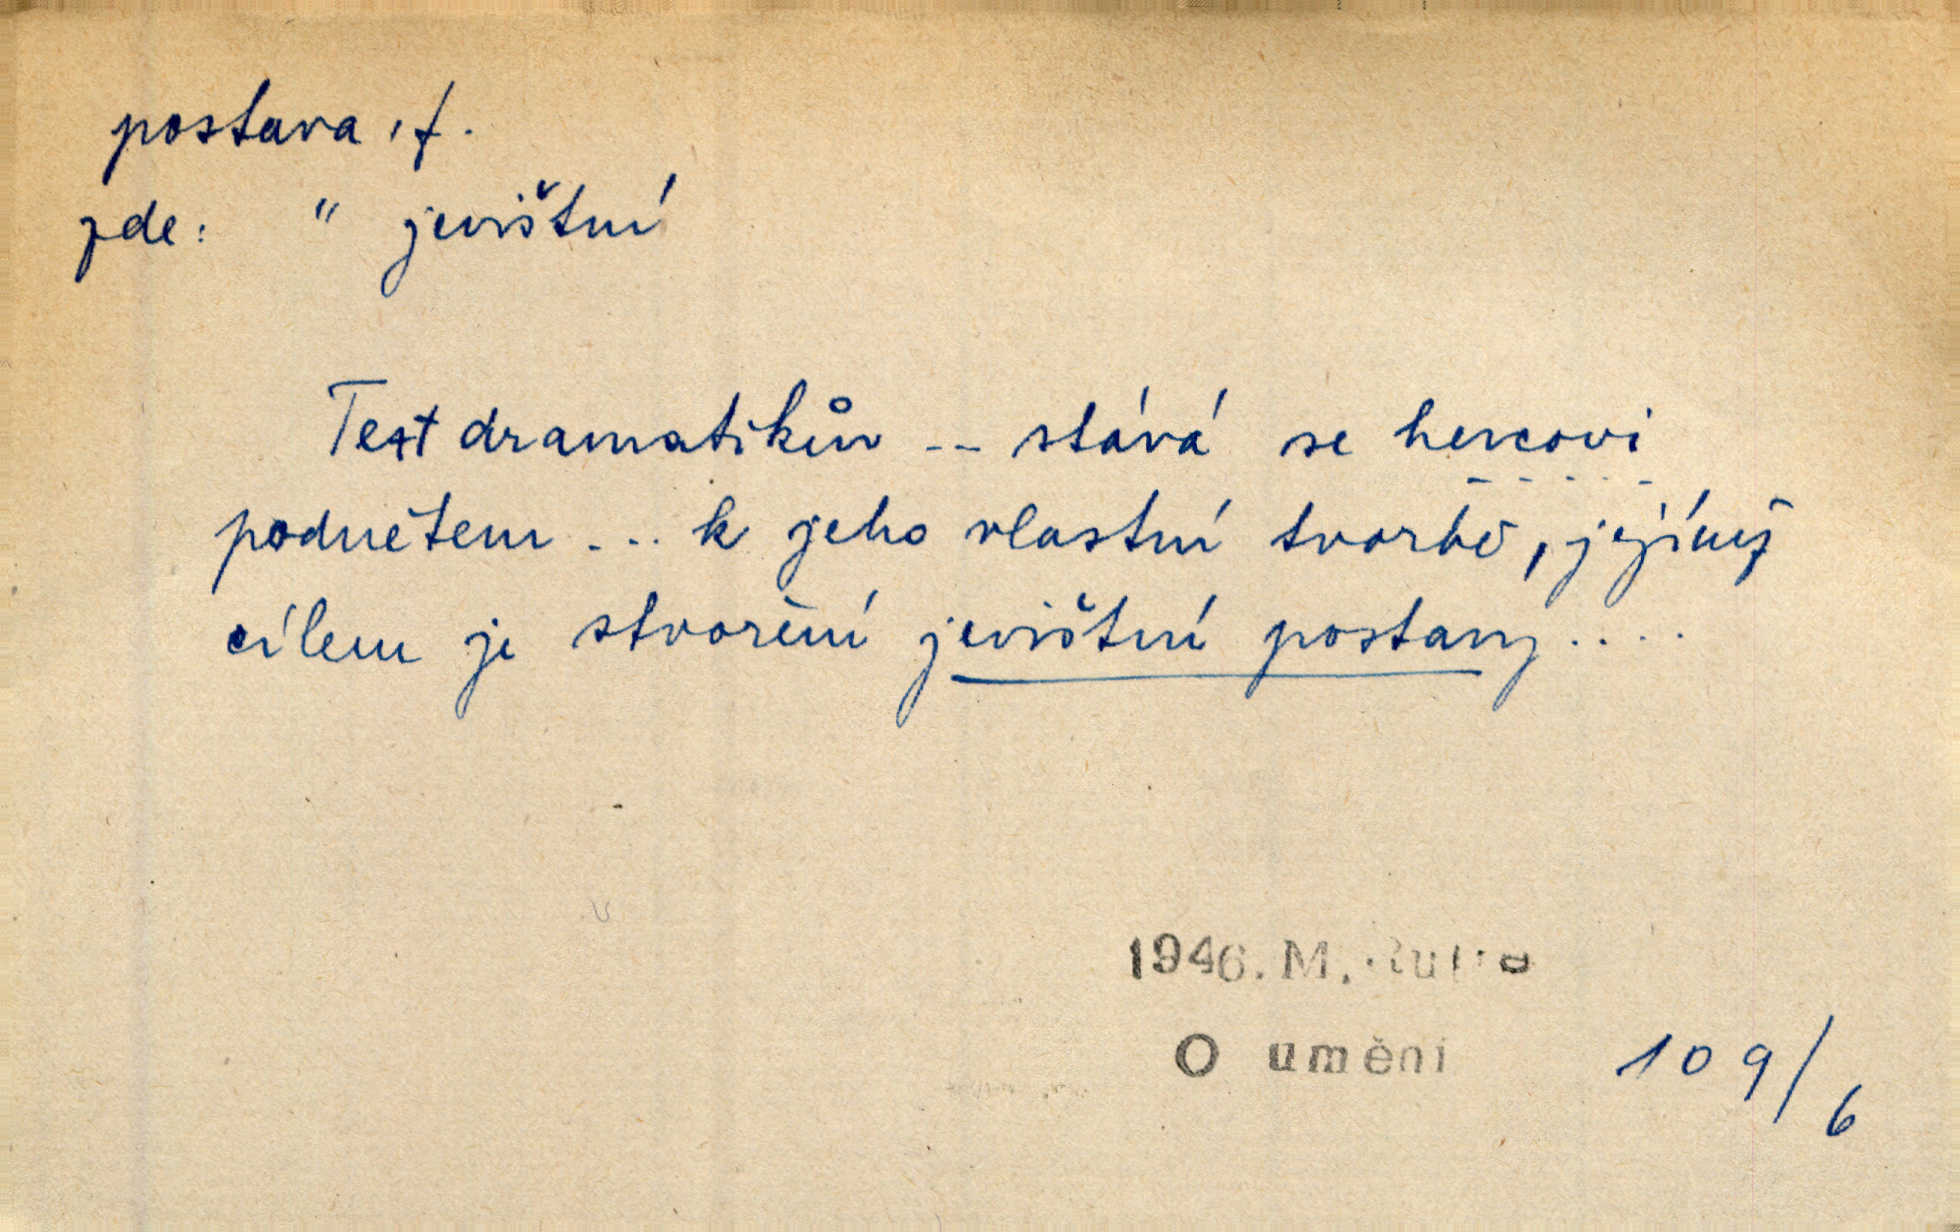 postava, f.
zde: " jevištní
Text dramatikův -- stává se hercovi
podnětem ... k jeho vlastní tvorbě, jejímž
cílem je stvoření jevištní postavy ....
1946. M.
O umění 109/6